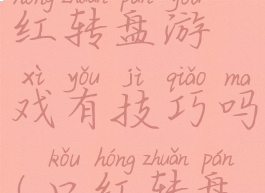 hóng zhuǎn pán yóu
红转盘游
xì yǒu jì qiǎo ma
戏有技巧吗
kǒu hóng zhuǎn pán
(口红转盘